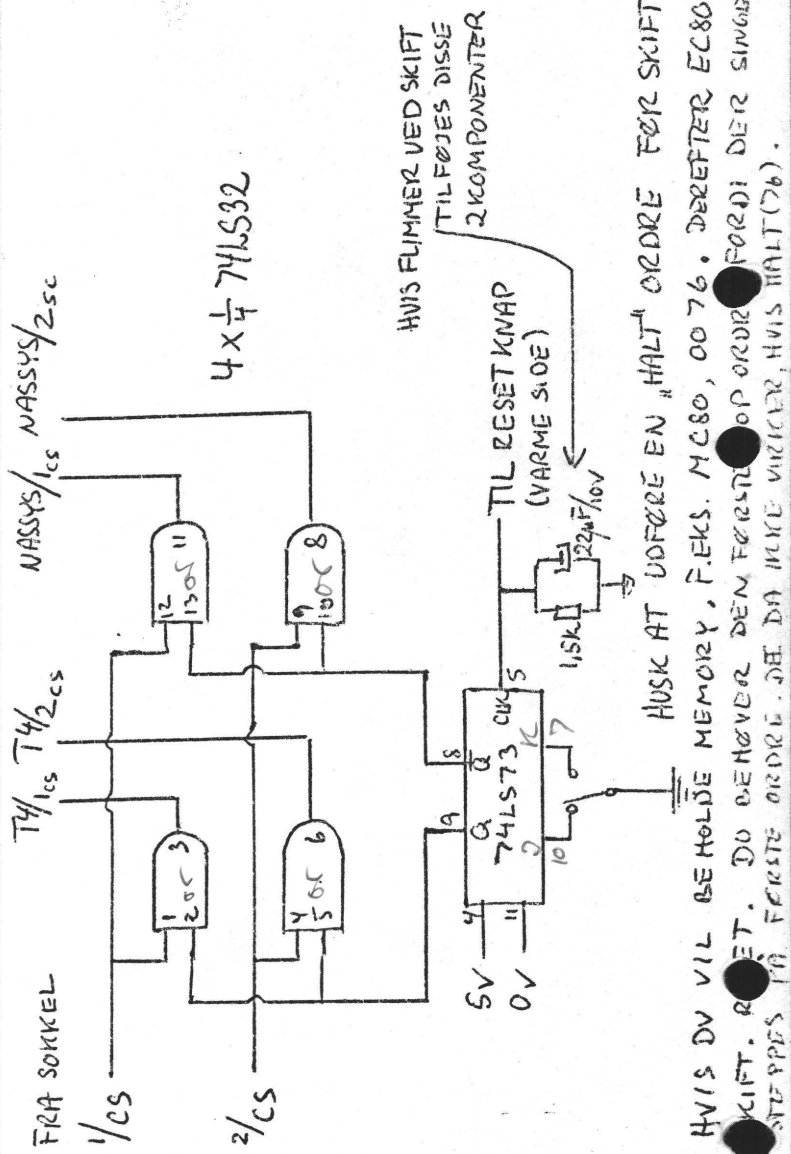 FRA SOKKEL
1/CS
2/CS
T4/1cs T4/2cs
NASSYS/1cs NASSYS/2sc
4 x 1/4 74LS32
1
2
or
3
4
5
or
6
12
13
or
11
9
10
or
8
5V
0V
4
11
9
8
Q
Q̄
74LS73
CLK
5
J
K
10
7
TIL RESET KNAP
(VARME SIDE)
1,5K
22µF/10V
HVIS FLIMMER VED SKIFT
TILFØJES DISSE
2 KOMPONENTER
HUSK AT UDFØRE EN „HALT" ORDRE FØR SKIFT
HVIS DU VIL BEHOLDE MEMORY. F.EKS. MC80, 0076. DEREFTER EC80
SKIFT. DU BEHØVER DEN OP ORDRE FORDI DER SINGLE
STEPPES PÅ FØRSTE ORDRE. DA IKKE VIRKER, HVIS HALT(76).